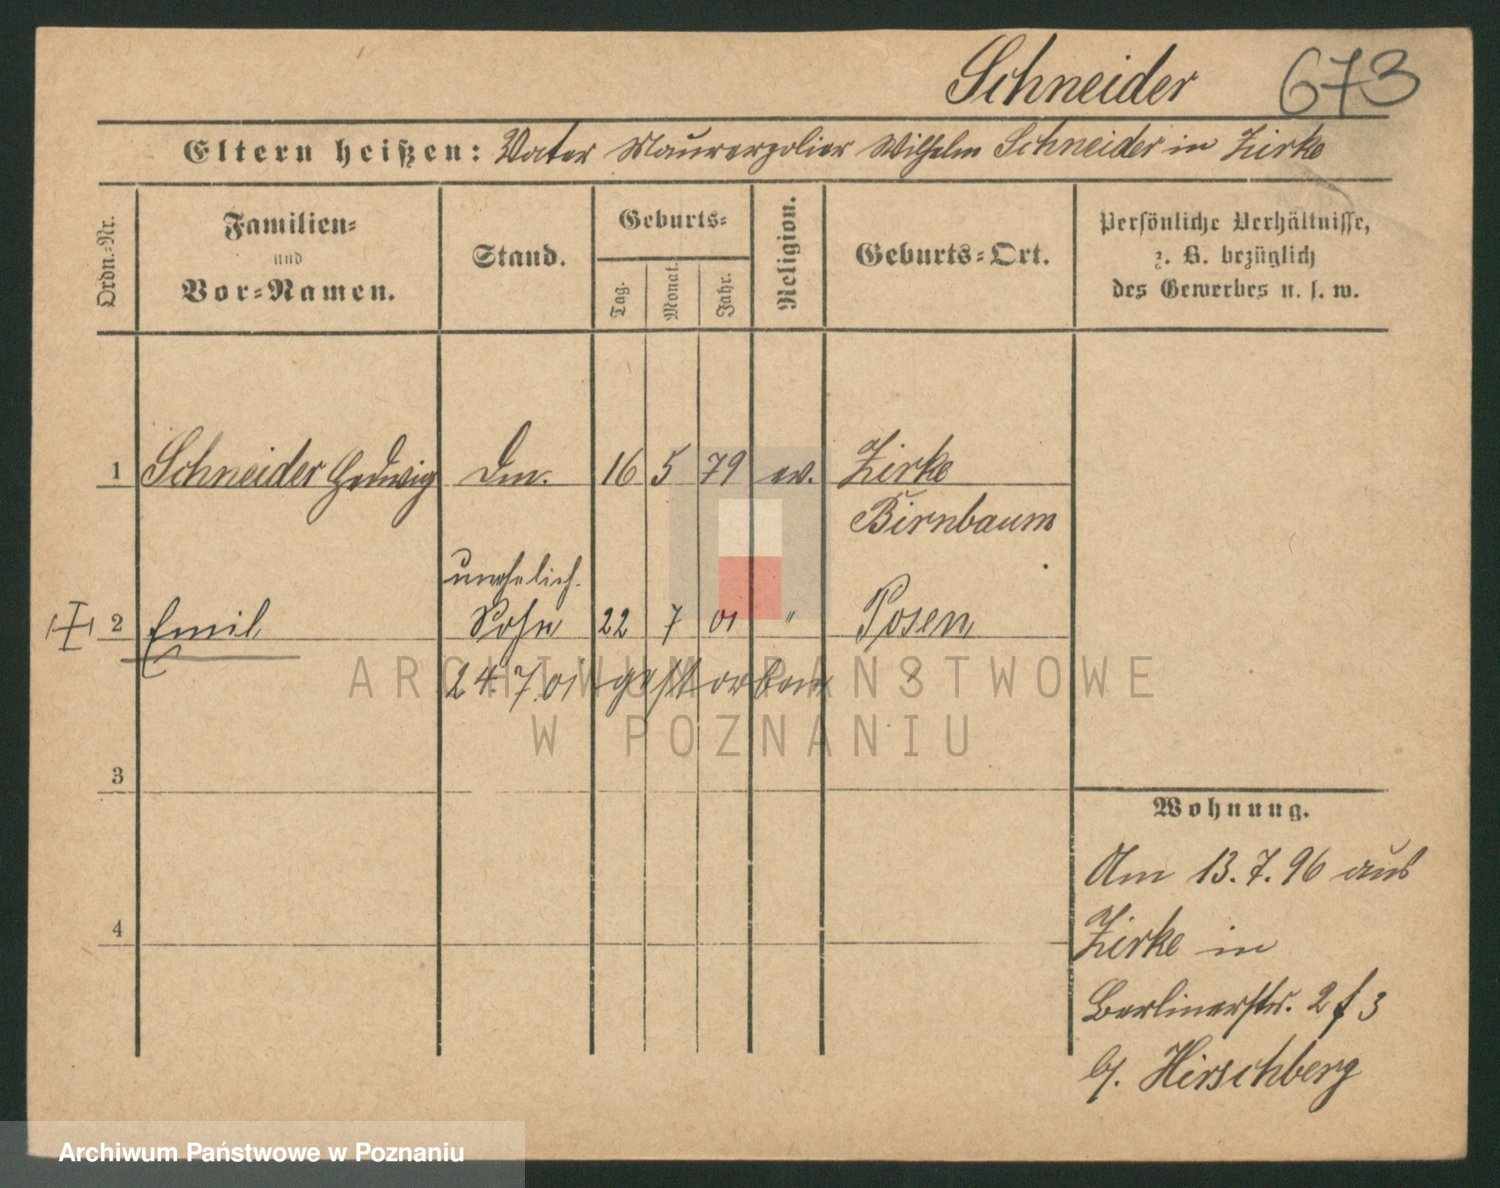 Schneider 673
Eltern heißen: Vater Maurerpolier Wilhelm Schneider in Zirke
Ordn.-Nr.
Familien-
und
Vor-Namen.
Stand.
Geburts-
Tag.
Monat.
Jahr.
Religion.
Geburts-Ort.
Persönliche Verhältnisse,
z. B. bezüglich
des Gewerbes u. s. w.
1 Schneider Hedwig 16 5 79 ev. Zirke
Birnbaum
unehelich.
2 Emil Sohn 22 7 01 " Posen
24.7.01 gestorben
3
4
Wohnung.
Am 13.7.96 aus
Zirke in
Berlinerstr. 2 f 3
b/. Hirschberg
ARCHIWUM PAŃSTWOWE
W POZNANIU
Archiwum Państwowe w Poznaniu